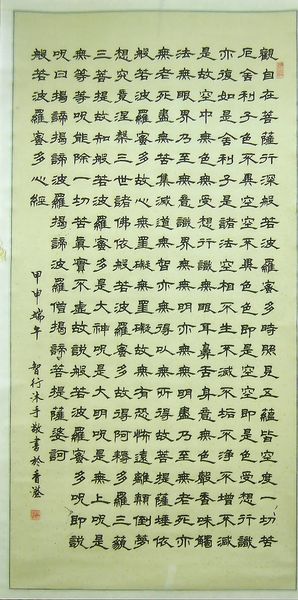 觀自在菩薩行深般若波羅蜜多時照見五蘊皆空度一切苦
厄舍利子色不異空空不異色色即是空空即是色受想行識
亦復如是舍利子是諸法空相不生不滅不垢不淨不增不減
是故空中無色無受想行識無眼耳鼻舌身意無色聲香味觸
法無眼界乃至無意識界無無明亦無無明盡乃至無老死亦
無老死盡無苦集滅道無智亦無得以無所得故菩提薩埵依
般若波羅蜜多故心無罣礙無罣礙故無有恐怖遠離顛倒夢
想究竟涅槃三世諸佛依般若波羅蜜多故得阿耨多羅三藐
三菩提故知般若波羅蜜多是大神呪是大明呪是無上呪是
無等等呪能除一切苦真實不虛故說般若波羅蜜多呪即說
呪曰揭諦揭諦波羅揭諦波羅僧揭諦菩提薩婆訶
般若波羅蜜多心經
甲申端午 智行沐手敬書於香港